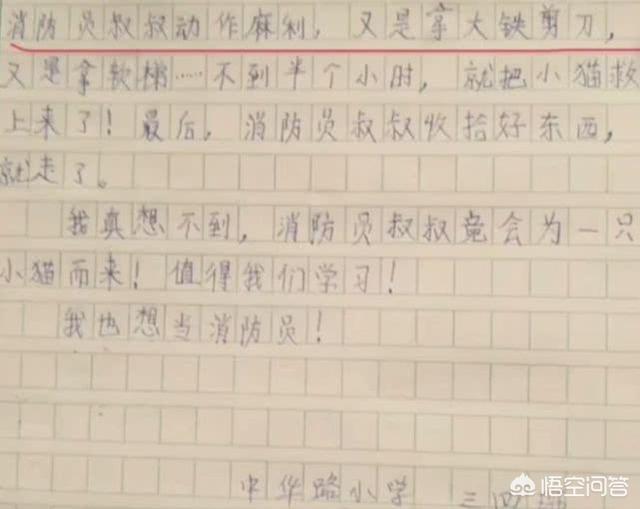 消防员叔叔动作麻利，又是拿大铁剪刀，
又是拿软梯……不到半个小时，就把小猫救
上来了！最后，消防员叔叔收拾好东西，
就走了。
我真想不到，消防员叔叔竟会为一只
小猫而来！值得我们学习！
我也想当消防员！
中华路小学 三四
悟空问答